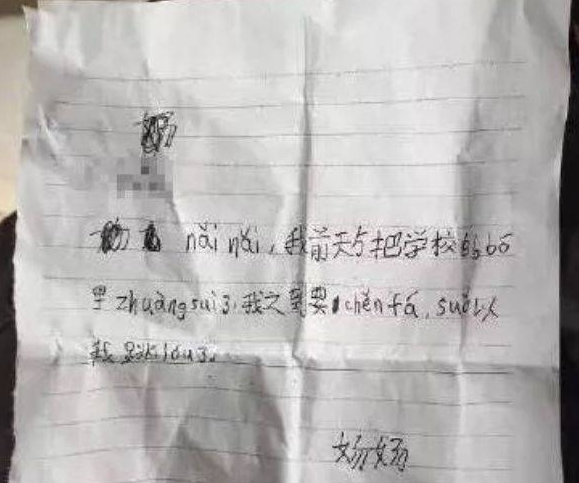 nǎi nǎi，我前天把学校的bō
里zhuàng suì了，我之到要chěn fá，suǒ以
我跳lóu了。